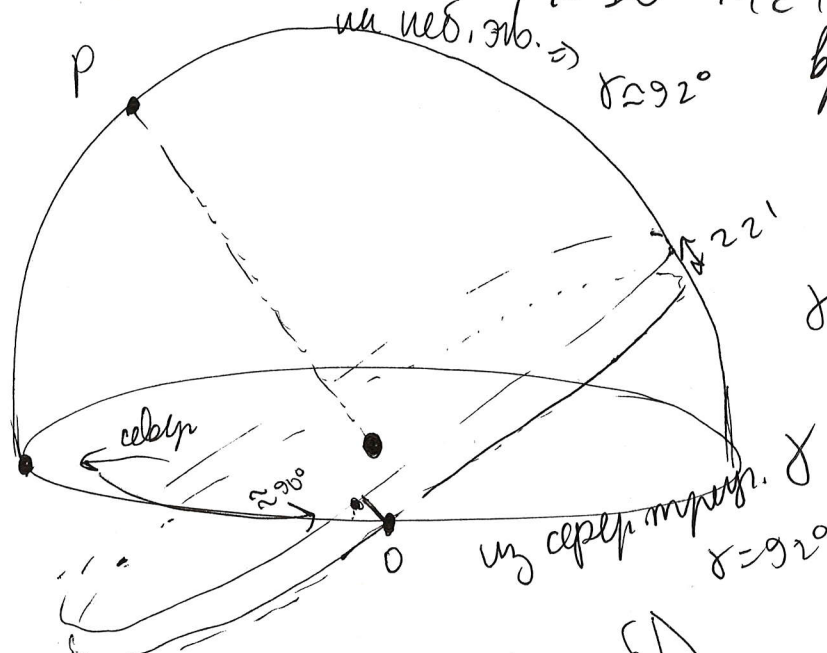 на неб. экв. ⇒
P
γ≃92°
22'
γ
север
≈90°
O
из сфер. треуг. γ
γ=92°